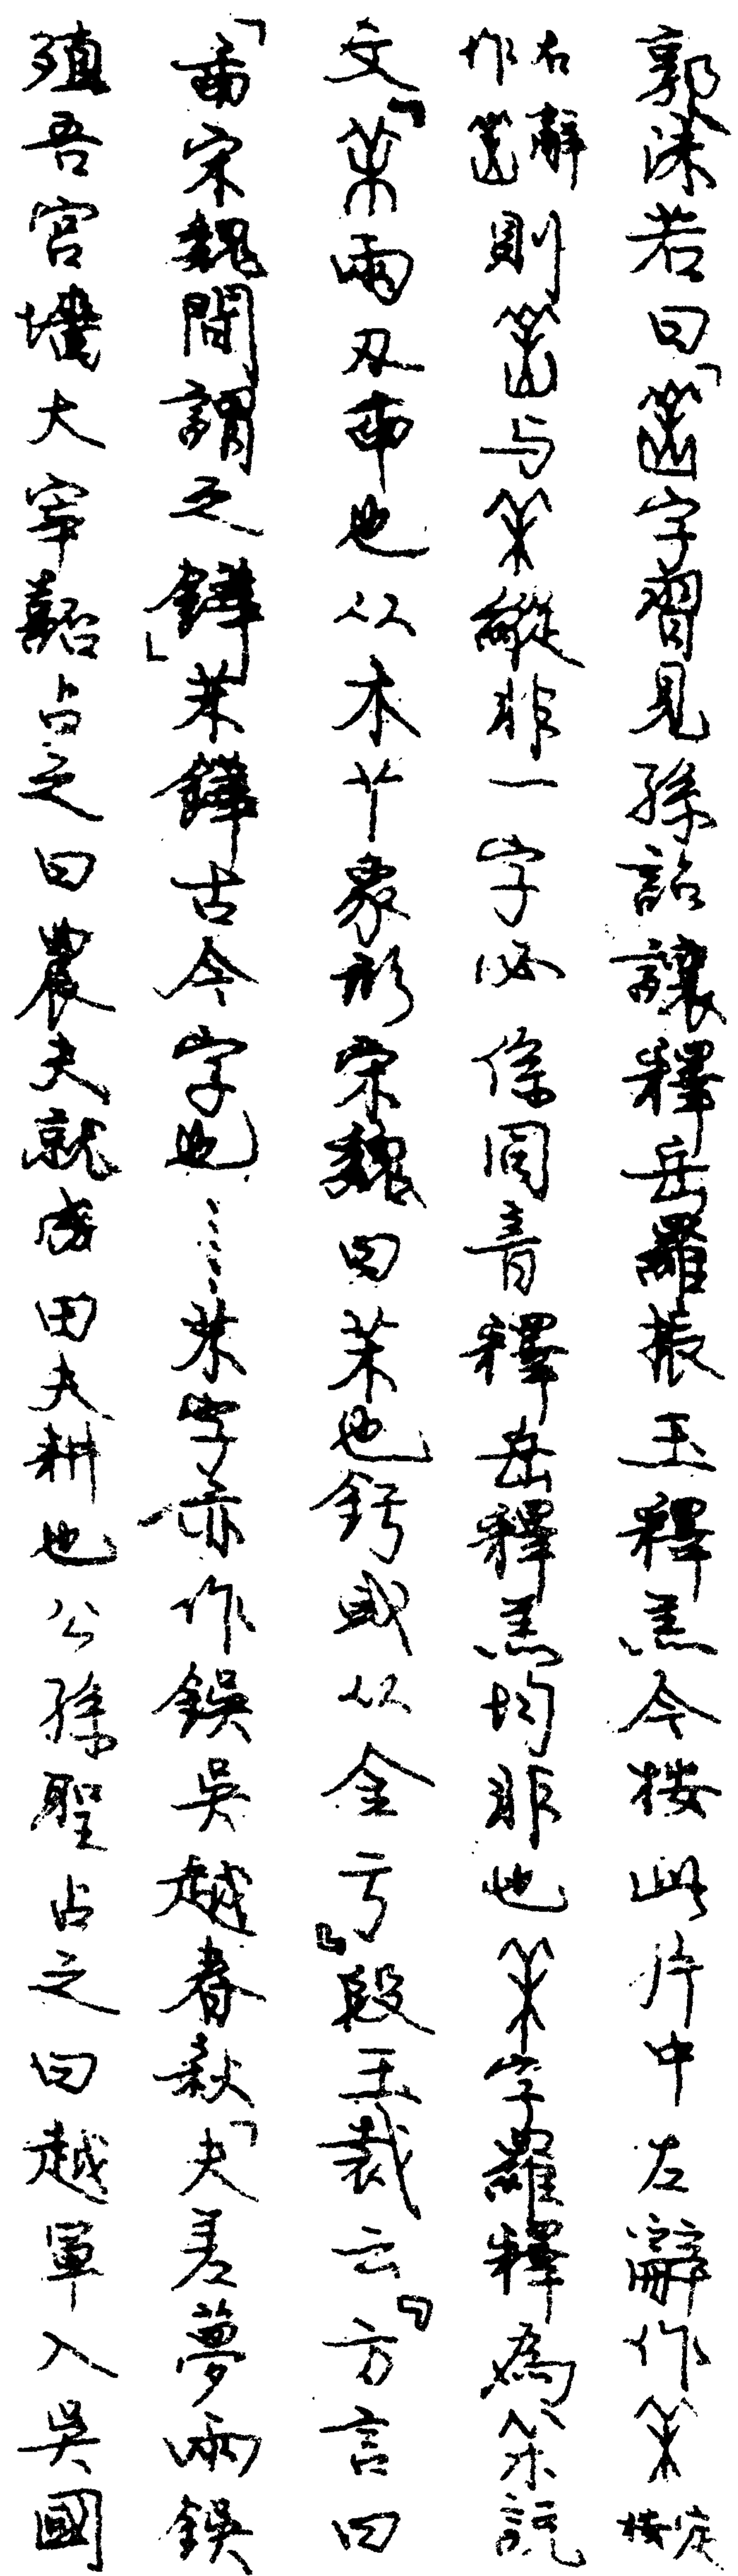 郭沫若曰「𡴎字習見孫詒讓釋岳羅振玉釋羔今按此片中左辭作𣎳按定
右辭作𡴎則𡴎与𣎳縱非一字必係同音釋岳釋羔均非也𣎳字羅釋為𣎳説
文『枼兩刃臿也从木𠆢象形宋魏曰茉也釫或从金亏』段玉裁云『方言曰
「臿宋魏間謂之鏵」茉鏵古今字也……茉字亦作鋘吳越春秋「夫差夢兩鋘
殖吾宮墻大宰嚭占之曰農夫就成田夫耕也公孫聖占之曰越軍入吳國